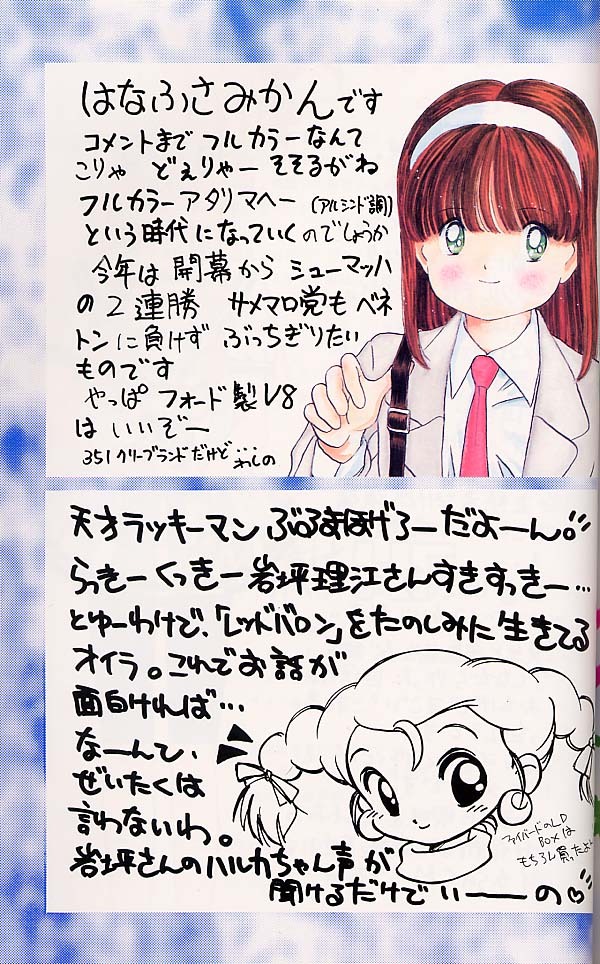 はなふさみかんです
コメントまでフルカラーなんて
こりゃ どえりゃー そそるがね
フルカラーアタリマヘー (アルシンド調)
という時代になっていくのでしょうか
今年は開幕からシューマッハ
の2連勝 サメマロ党もベネ
トンに負けず ぶっちぎりたい
ものです
やっぱ フォード製V8
は いいぞー
351クリーブランドだけど… わしの
天才ラッキーマン ぶるまほげろーだよーん。
らっきーくっきー岩坪理江さんすきすっきー…
とゆーわけで、「レッドバロン」をたのしみに生きてる
オイラ。これでお話が
面白ければ…
なーんて、
ぜいたくは
言わないわ。
岩坪さんのハルカちゃん声が
聞けるだけでいーーの♡
ファイバードのLD
BOXは
もちろん買ったよ